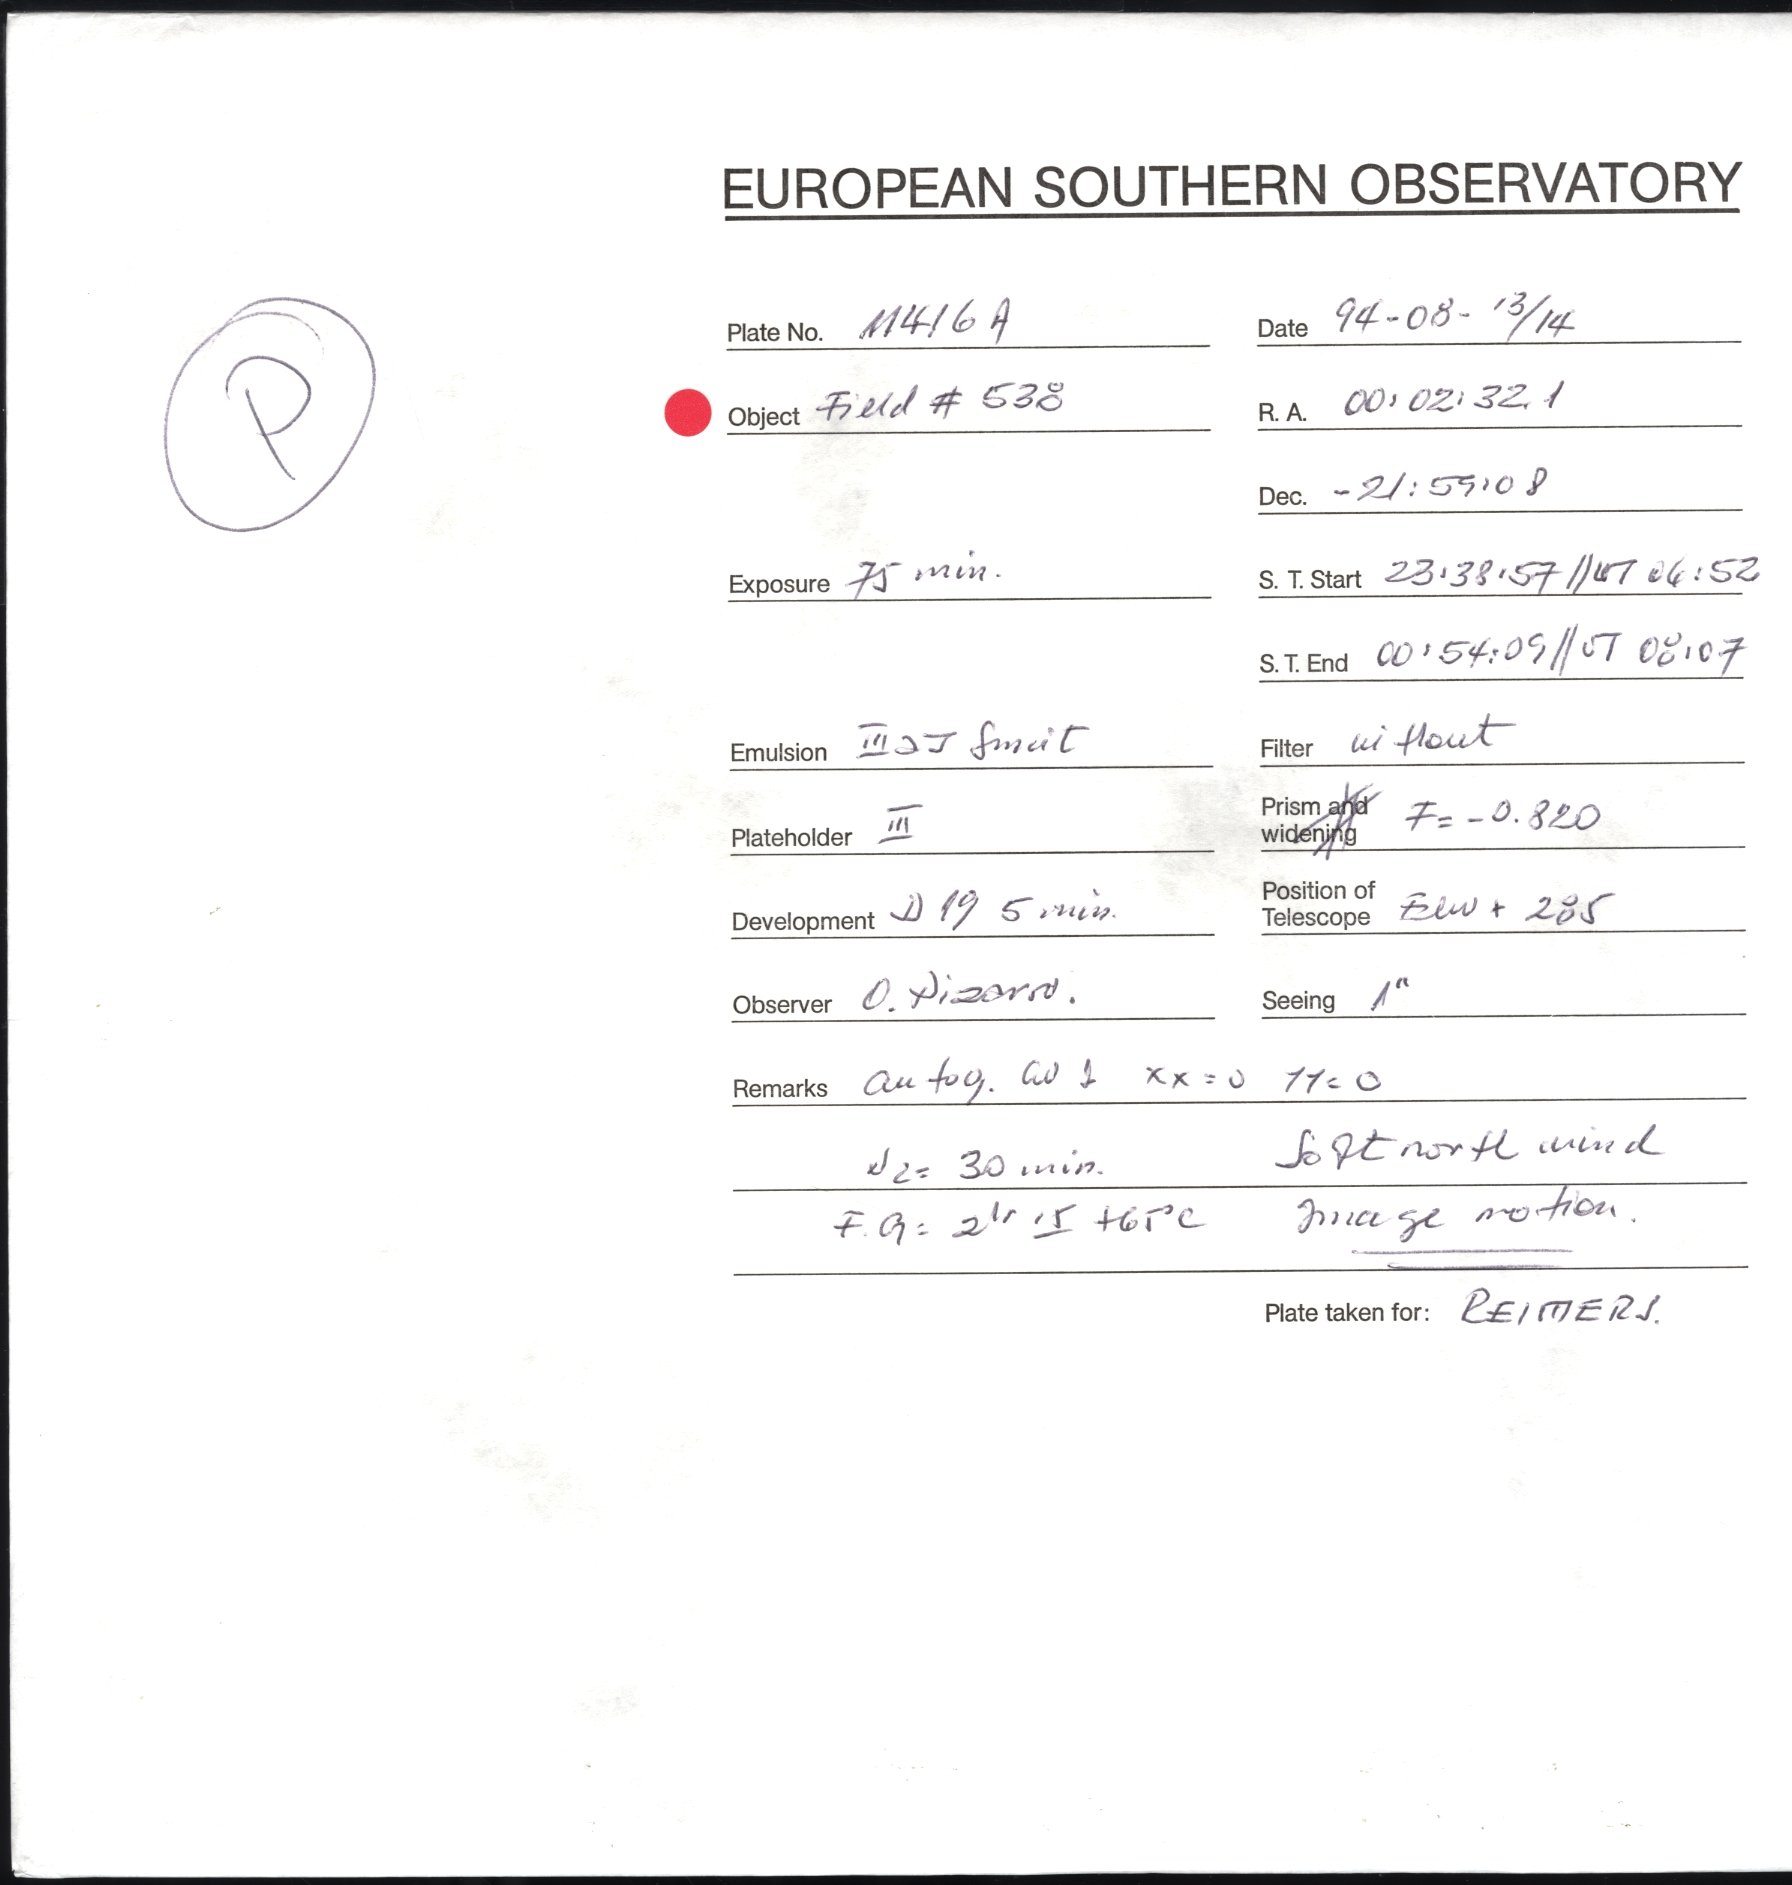 EUROPEAN SOUTHERN OBSERVATORY
P
Plate No. 11416 A Date 94-08-13/14
Object Field # 538 R. A. 00:02:32.1
Dec. -21:59:08
Exposure 75 min. S. T. Start 23:38:57 // UT 06:52
S. T. End 00:54:09 // UT 08:07
Emulsion IIIaJ Filter without
Plateholder III Prism and widening F= -0.820
Development D 19 5 min. Position of Telescope + 285
Observer O. Pizarro. Seeing 1"
Remarks autog. xx=0 YY=0
N2= 30 min. Soft north wind
F.G= 2hr 15 +65°C Image motion.
Plate taken for: REIMERS.